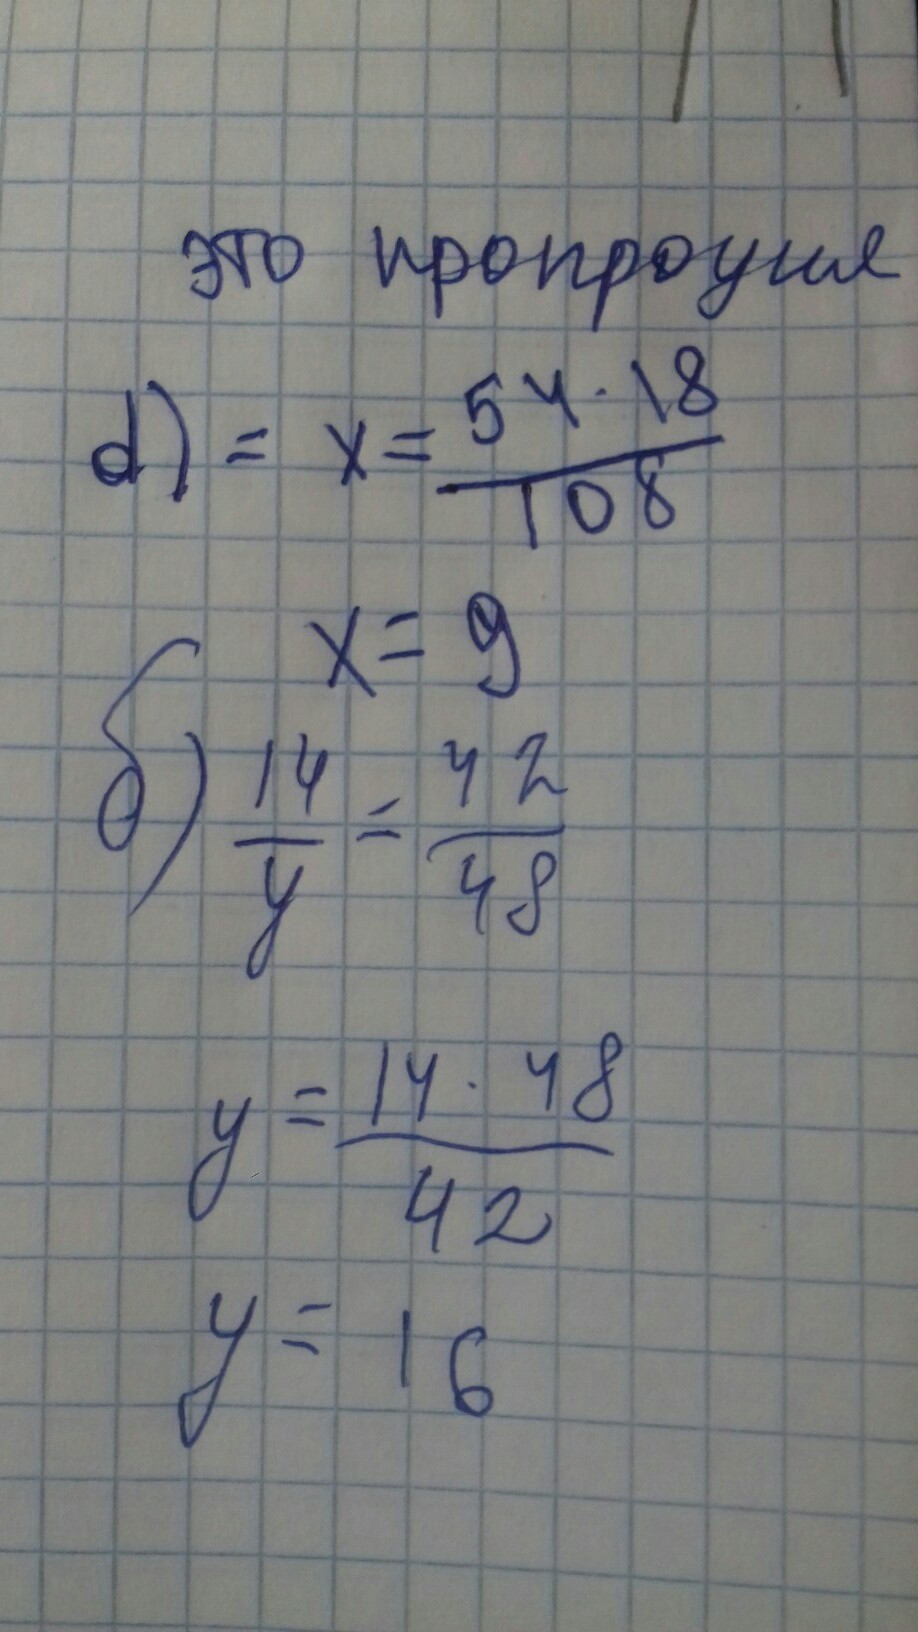 это пропроция
d) = x = 54·18/108
x = 9
б) 14/y = 42/48
y = 14·48/42
y = 16